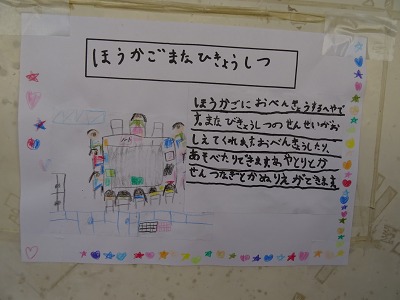 ほうかごまなびきょうしつ
ほうかごにおべんきょうするへやで
す。まなびきょうしつのせんせいがお
しえてくれます。おべんきょうしたり、
あそべたりできます。あやとりとか
せんつなぎとかぬりえができます